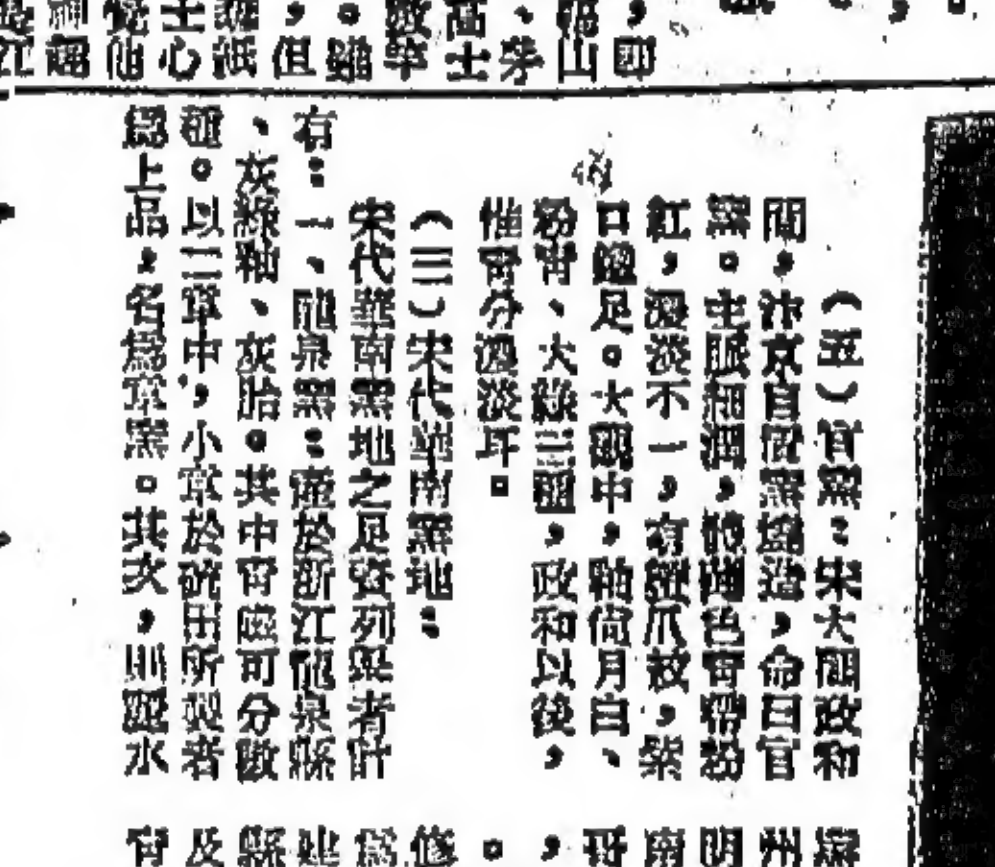 （五）官窯：宋大觀政和
間，汴京自置窯燒造，命曰官
窯。土脈細潤，體薄色青帶粉
紅，濃淡不一，有蟹爪紋，紫
口鐵足。大觀中，釉尚月白、
粉青、大綠三種，政和以後，
惟青分濃淡耳。
（三）宋代華南窯地：
宋代華南窯地之足資列舉者計
有：一、龍泉窯：產於浙江龍泉縣
、灰綠釉、灰胎。其中青磁可分數
種。以二章中，小章於琉田所製者
為上品，名為章窯。其次，則麗水